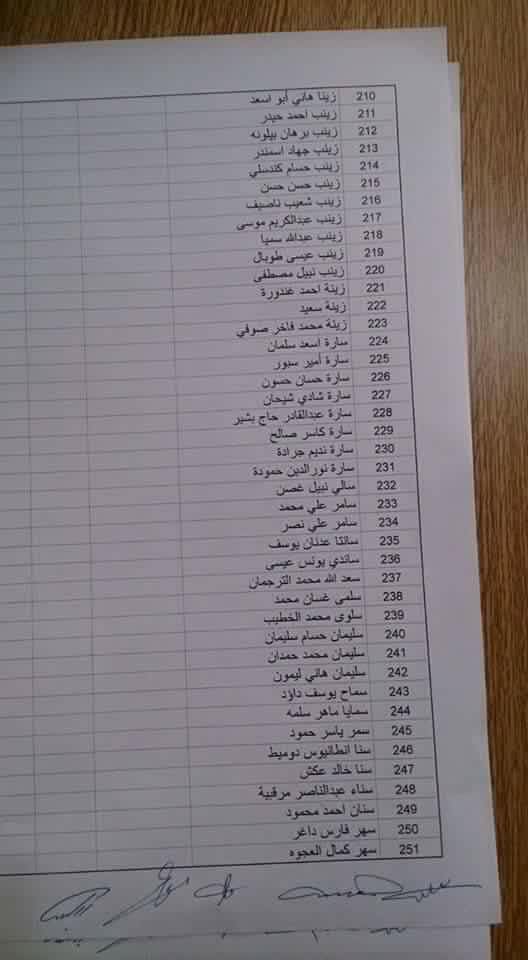 210 زينا هاني أبو اسعد
211 زينب احمد حيدر
212 زينب برهان بيلونه
213 زينب جهاد اسمندر
214 زينب حسام كندسلي
215 زينب حسن حسن
216 زينب شعيب ناصيف
217 زينب عبدالكريم موسى
218 زينب عبدالله سميا
219 زينب عيسى طوبال
220 زينب نبيل مصطفى
221 زينة احمد غندورة
222 زينة سعيد
223 زينة محمد فاخر صوفي
224 سارة اسعد سلمان
225 سارة أمير سبور
226 سارة حسان حسون
227 سارة شادي شيحان
228 سارة عبدالقادر حاج بشير
229 سارة كاسر صالح
230 سارة نديم جرادة
231 سارة نورالدين حمودة
232 سالي نبيل غصن
233 سامر علي محمد
234 سامر علي نصر
235 سانتا عدنان يوسف
236 ساندي يونس عيسى
237 سعد الله محمد الترجمان
238 سلمى غسان محمد
239 سلوى محمد الخطيب
240 سليمان حسام سليمان
241 سليمان محمد حمدان
242 سليمان هاني ليمون
243 سماح يوسف داؤد
244 سمايا ماهر سلمه
245 سمر ياسر حمود
246 سنا انطانيوس دوميط
247 سنا خالد عكش
248 سناء عبدالناصر مرقبية
249 سنان احمد محمود
250 سهر فارس داغر
251 سهر كمال العجوه